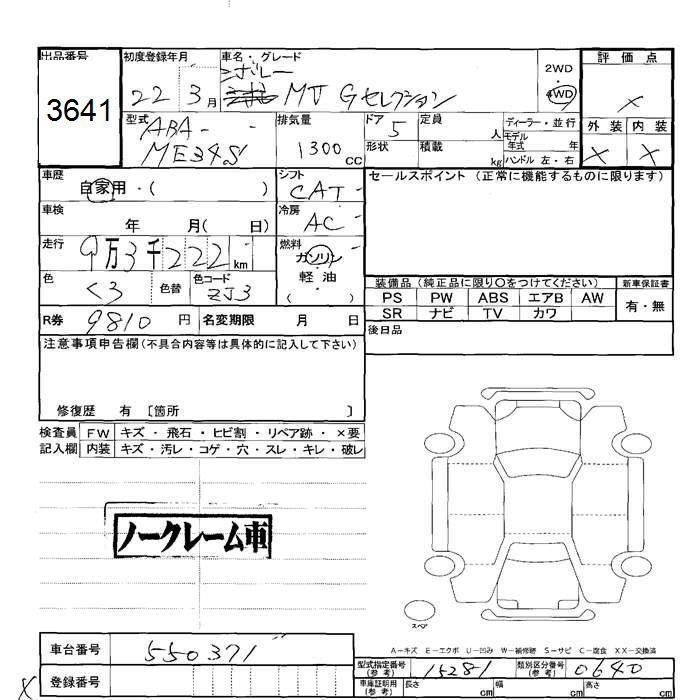 出品番号
3641
初度登録年月
22 3月
車名・グレード
デミオ
ボレー
MJ Gセレクション
2WD
・
4WD
評価点
×
外装 内装
× ×
型式
ABA-
ME34S
排気量
1300cc
ドア 5
形状
定員 人
積載 kg
ディーラー・並行
モデル年式 年
ハンドル 左・右
車歴
自家用・( )
シフト
CAT
セールスポイント (正常に機能するものに限ります)
車検
年 月( 日)
冷房
AC
走行
9万3千222km
燃料
ガソリン
・
軽油
( )
色
くろ
色替
色コード
ZJ3
装備品(純正品に限り〇をつけてください)
新車保証書
PS PW ABS エアB AW
SR ナビ TV カワ
有・無
R券 9810円
名変期限 月 日
後日品
注意事項申告欄(不具合内容等は具体的に記入して下さい)
修復歴 有 〔箇所 〕
検査員 FW キズ・飛石・ヒビ割・リペア跡・×要
記入欄 内装 キズ・汚レ・コゲ・穴・スレ・キレ・破レ
ノークレーム車
スペア
A-キズ E-エクボ U-凹み W-補修跡 S-サビ C-腐食 XX-交換済
車台番号 550371
型式指定番号(参考) 15281
類別区分番号(参考) 0640
× 登録番号
車庫証明用(参考) 長さ cm 幅 cm 高さ cm